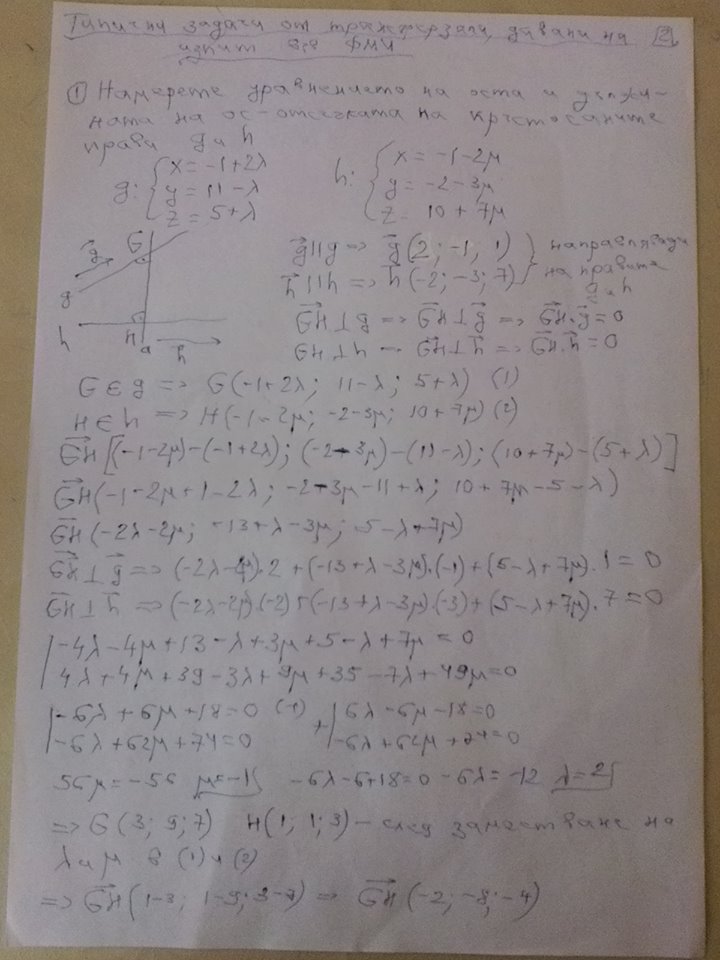 Типични задачи от трансверзали, давани на 2
изпит във ФМИ
① Намерете уравнението на оста и дължи-
ната на ос-отсечката на кръстосаните
прави g и h
g: { x = -1+2λ
y = 11-λ
z = 5+λ
h: { x = -1-2μ
y = -2-3μ
z = 10+7μ
G
g
g
h
H
a
h
g⃗ || g => g⃗ (2; -1, 1) } направляващи
h⃗ || h => h⃗ (-2; -3; 7) } на правите
g и h
GH⃗ ⊥ g => GH⃗ ⊥ g⃗ => GH⃗ . g⃗ = 0
GH ⊥ h => GH⃗ ⊥ h⃗ => GH⃗ . h⃗ = 0
G ∈ g => G(-1+2λ; 11-λ; 5+λ) (1)
H ∈ h => H(-1-2μ; -2-3μ; 10+7μ) (2)
GH⃗ [(-1-2μ)-(-1+2λ); (-2-3μ)-(11-λ); (10+7μ)-(5+λ)]
GH⃗ (-1-2μ+1-2λ; -2-3μ-11+λ; 10+7μ-5-λ)
GH⃗ (-2λ-2μ; -13+λ-3μ; 5-λ+7μ)
GH⃗ ⊥ g⃗ => (-2λ-2μ).2 + (-13+λ-3μ).(-1) + (5-λ+7μ).1 = 0
GH⃗ ⊥ h⃗ => (-2λ-2μ).(-2) + (-13+λ-3μ).(-3) + (5-λ+7μ).7 = 0
| -4λ-4μ+13-λ+3μ+5-λ+7μ = 0
| 4λ+4μ+39-3λ+9μ+35-7λ+49μ=0
| -6λ+6μ+18=0 (-1) + | 6λ-6μ-18=0
| -6λ+62μ+74=0 | -6λ+62μ+74=0
56μ=-56 μ=-1 -6λ-6+18=0 -6λ=-12 λ=2
=> G(3; 9; 7) H(1, 1; 3) - след заместване на
λ и μ в (1) и (2)
=> GH⃗ (1-3; 1-9; 3-7) => GH⃗ (-2; -8; -4)